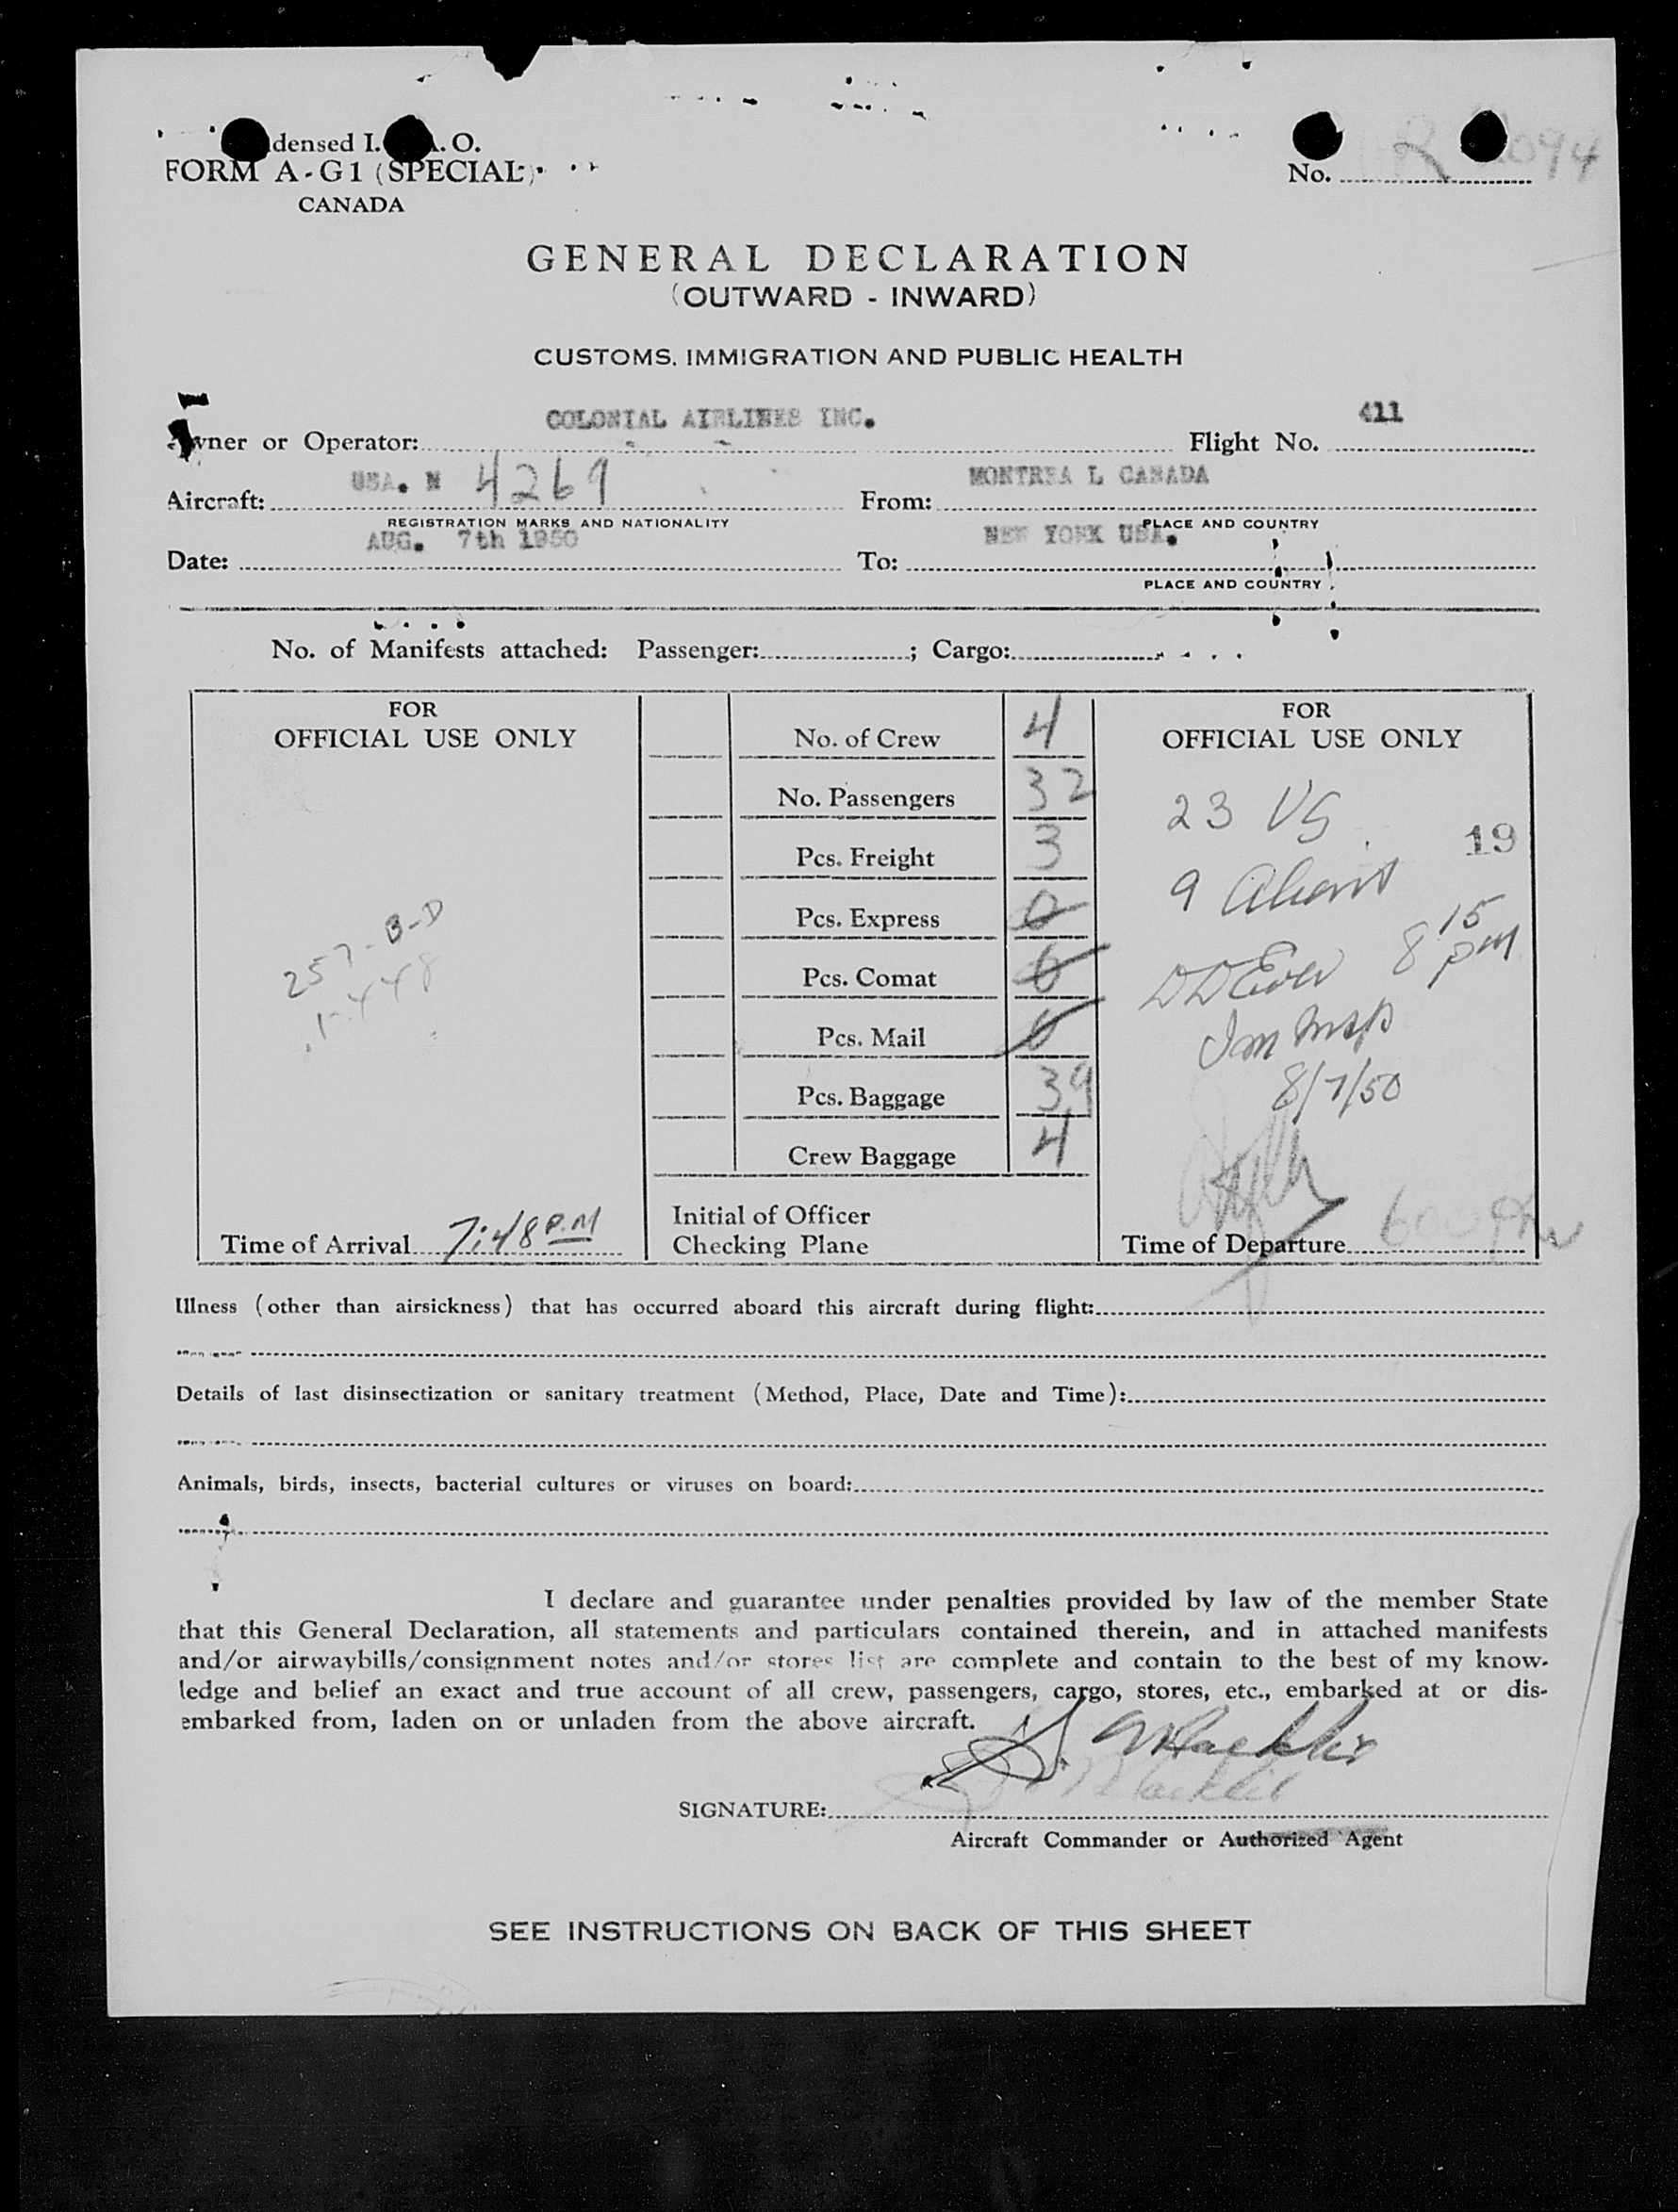 densed I. A. O.
FORM A-G1 (SPECIAL)
CANADA
No. R 094
GENERAL DECLARATION
(OUTWARD - INWARD)
CUSTOMS, IMMIGRATION AND PUBLIC HEALTH
Owner or Operator: COLONIAL AIRLINES INC. Flight No. 411
Aircraft: USA. N 4269 From: MONTREA L CANADA
REGISTRATION MARKS AND NATIONALITY PLACE AND COUNTRY
Date: AUG. 7th 1950 To: NEW YORK USA.
PLACE AND COUNTRY
No. of Manifests attached: Passenger: ; Cargo:
FOR
OFFICIAL USE ONLY
257-B-D
Time of Arrival 7:48 P.M
No. of Crew 4
No. Passengers 32
Pcs. Freight 3
Pcs. Express 0
Pcs. Comat 0
Pcs. Mail 0
Pcs. Baggage 39
Crew Baggage 4
Initial of Officer
Checking Plane
FOR
OFFICIAL USE ONLY
23 US
19
9 Aliens
8 15 pm
Im Insp
8/7/50
Time of Departure 600 PM
Illness (other than airsickness) that has occurred aboard this aircraft during flight:
Details of last disinsectization or sanitary treatment (Method, Place, Date and Time):
Animals, birds, insects, bacterial cultures or viruses on board:
I declare and guarantee under penalties provided by law of the member State
that this General Declaration, all statements and particulars contained therein, and in attached manifests
and/or airwaybills/consignment notes and/or stores list are complete and contain to the best of my know-
ledge and belief an exact and true account of all crew, passengers, cargo, stores, etc., embarked at or dis-
embarked from, laden on or unladen from the above aircraft.
SIGNATURE:
Aircraft Commander or Authorized Agent
SEE INSTRUCTIONS ON BACK OF THIS SHEET